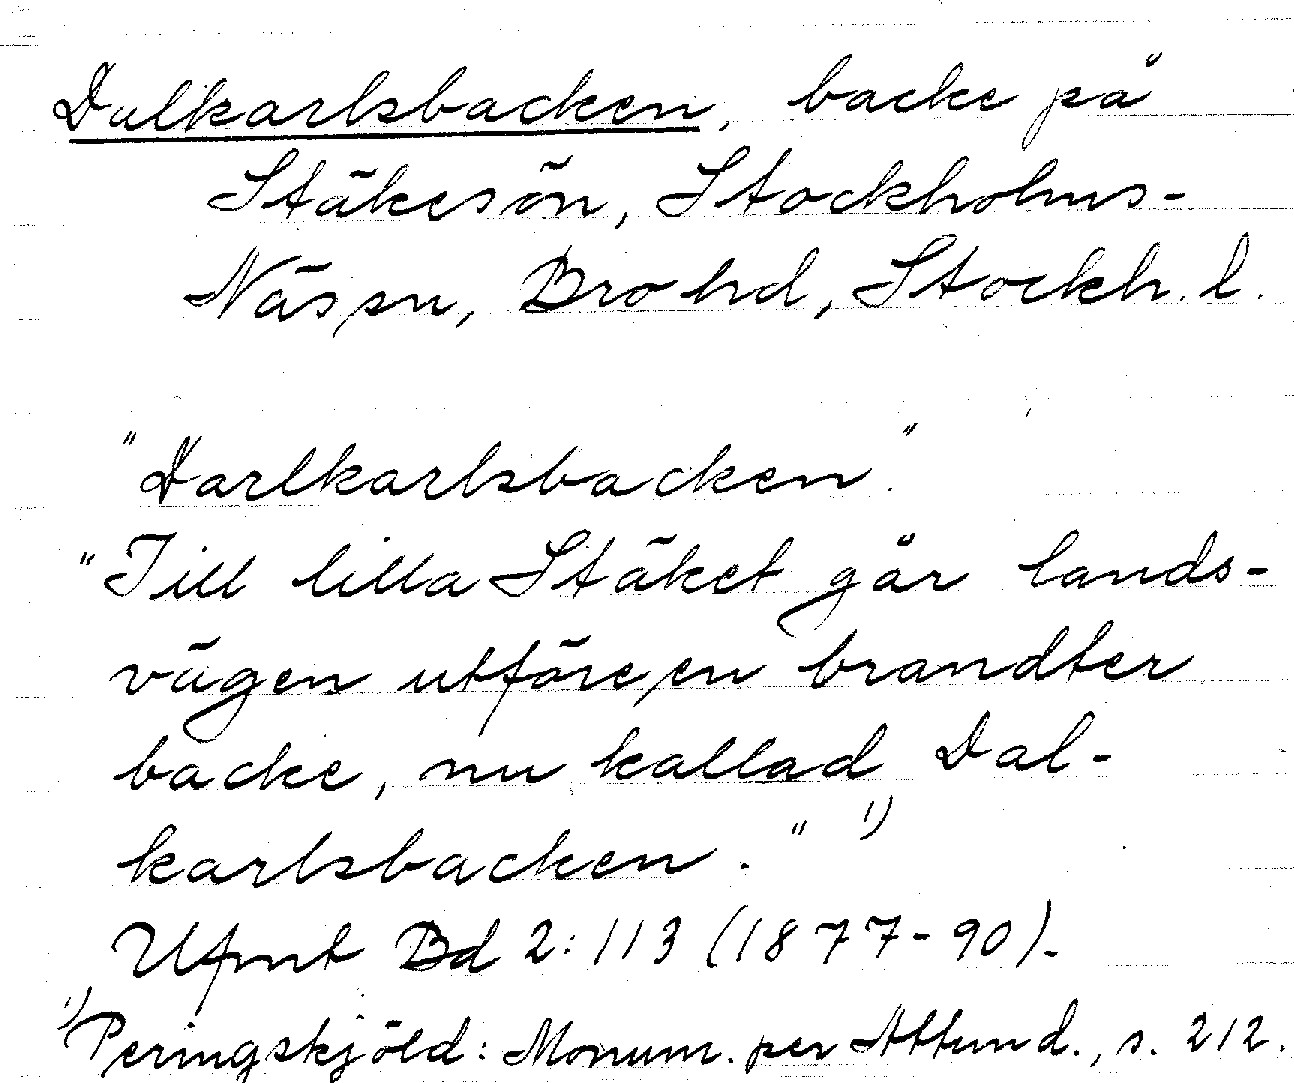 Dalkarlsbacken, backe på
Stäkesön, Stockholms-
Näs sn, Bro hd, Stockh. l.
"Darlkarlsbacken".
"Till lilla Stäket går lands-
vägen utföre en brandter
backe, nu kallad Dal-
karlsbacken." 1)
Ufmt Bd 2: 113 (1877-90).
1) Peringskjöld: Monum. per Attund., s. 212.